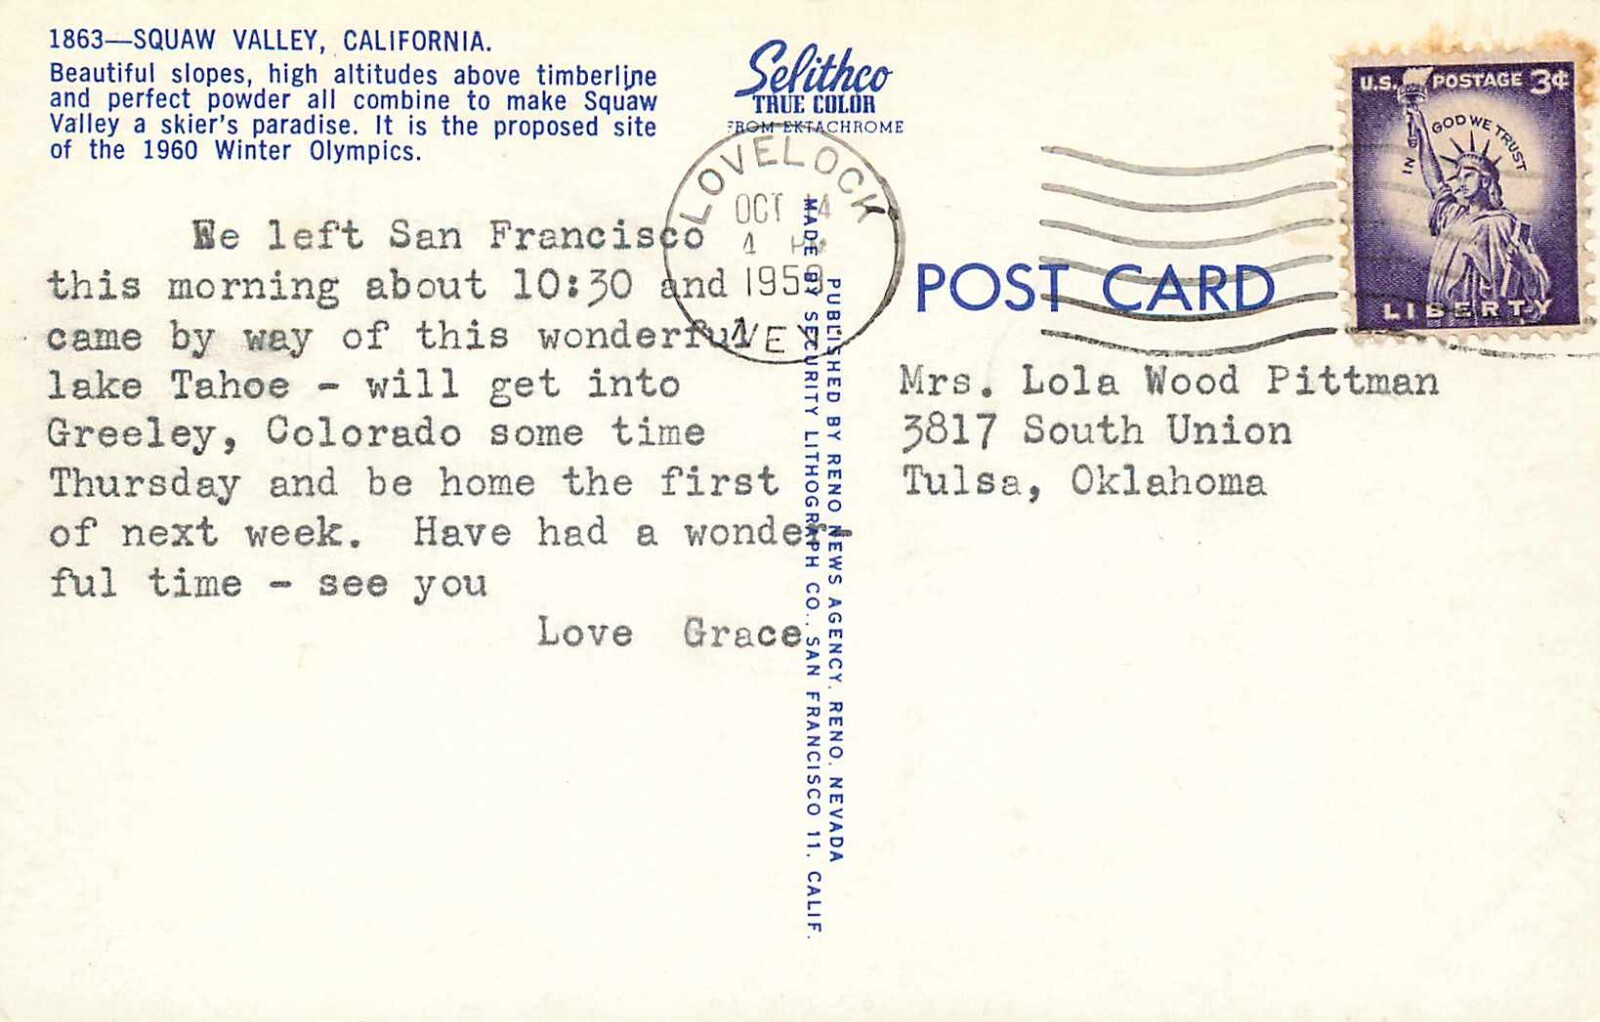 1863—SQUAW VALLEY, CALIFORNIA.
Beautiful slopes, high altitudes above timberline
and perfect powder all combine to make Squaw
Valley a skier's paradise. It is the proposed site
of the 1960 Winter Olympics.
Selithco
TRUE COLOR
FROM EKTACHROME
LOVELOCK
OCT 4
1959
NEV
U.S. POSTAGE 3¢
IN GOD WE TRUST
LIBERTY
POST CARD
We left San Francisco
this morning about 10:30 and
came by way of this wonderful
lake Tahoe - will get into
Greeley, Colorado some time
Thursday and be home the first
of next week. Have had a wonder-
ful time - see you
Love Grace
Mrs. Lola Wood Pittman
3817 South Union
Tulsa, Oklahoma
PUBLISHED BY RENO NEWS AGENCY, RENO, NEVADA
MADE BY SECURITY LITHOGRAPH CO., SAN FRANCISCO 11, CALIF.